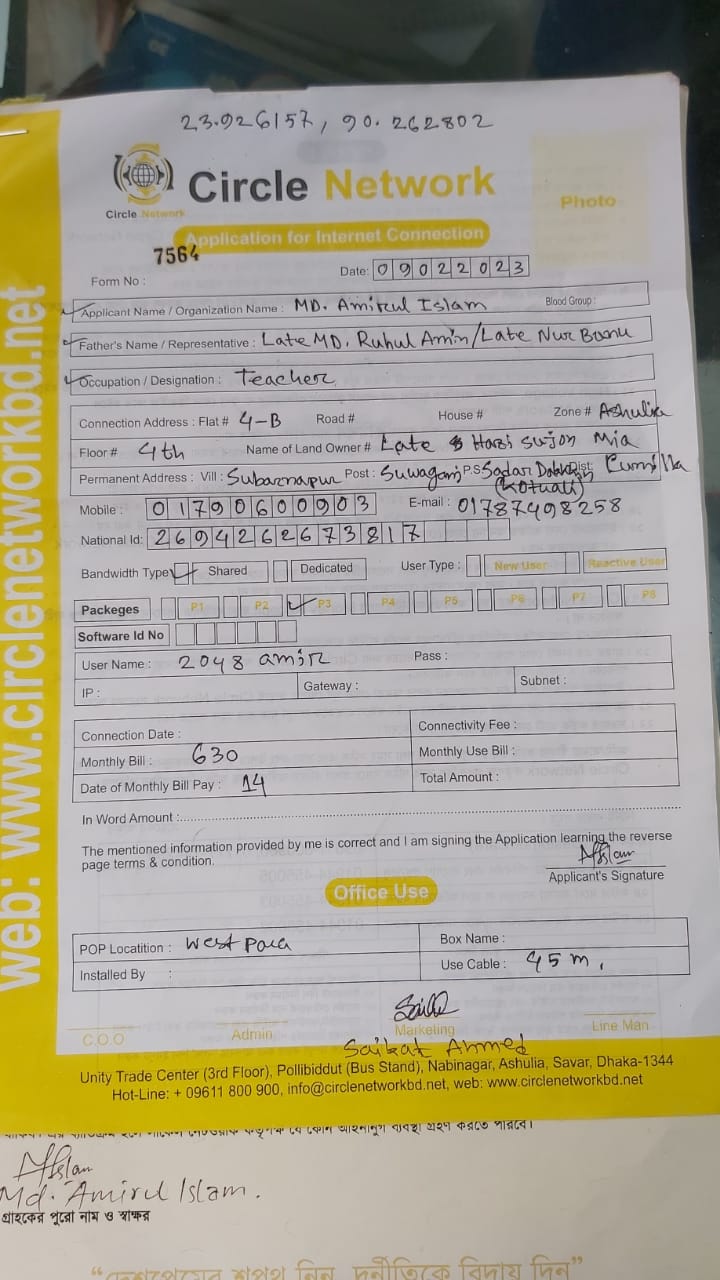 23.926157, 90.262802
Circle Network
Circle Network
Photo
Application for Internet Connection
7564
Form No :
Date: 09022023
Applicant Name / Organization Name : MD. Amirul Islam Blood Group :
Father's Name / Representative : Late MD. Ruhul Amin/Late Nur Banu
Occupation / Designation : Teacher
Connection Address : Flat # 4-B Road # House # Zone # Ashulia
Floor # 4th Name of Land Owner # Late Hazi Sujon Mia
Permanent Address : Vill : Subarnapur Post : Suwaganj P.S Sadar Dakhin Dist: Cumilla
(Kotuali)
Mobile : 01790600903 E-mail : 01787498258
National Id: 2694262673817
Bandwidth Type Shared Dedicated User Type : New User Reactive User
Packeges P1 P2 P3 P4 P5 P6 P7 P8
Software Id No
User Name : 2048 amir Pass :
IP : Gateway : Subnet :
Connection Date : Connectivity Fee :
Monthly Bill : 630 Monthly Use Bill :
Date of Monthly Bill Pay : 14 Total Amount :
In Word Amount :
The mentioned information provided by me is correct and I am signing the Application learning the reverse
page terms & condition.
Applicant's Signature
Office Use
POP Locatition : West Para Box Name :
Installed By : Use Cable : 45 m.
C.O.O Admin Marketing Line Man
Saikat Ahmed
Unity Trade Center (3rd Floor), Pollibiddut (Bus Stand), Nabinagar, Ashulia, Savar, Dhaka-1344
Hot-Line: + 09611 800 900, info@circlenetworkbd.net, web: www.circlenetworkbd.net
web: www.circlenetworkbd.net
Md. Amirul Islam.
গ্রাহকের পুরো নাম ও স্বাক্ষর